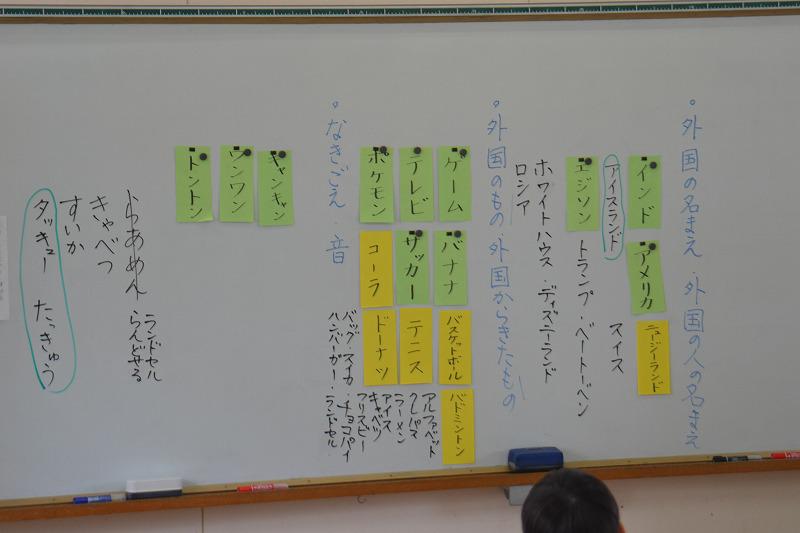 。外国の名まえ・外国の人の名まえ
インド
アメリカ
ニュージーランド
アイスランド
スイス
エジソン
トランプ・ベートーベン
ホワイトハウス・ディズニーランド
ロシア
。外国のもの・外国からきたもの
ゲーム
バナナ
バスケットボール
バドミントン
テレビ
サッカー
テニス
ポケモン
コーラ
ドーナツ
アルファベット
クレパス
ラーメン
アイス
キャベツ
フリスビー
バッグ・スイカ・チョコパイ
ハンバーガー・ランドセル・
。なきごえ・音
キャンキャン
ワンワン
トントン
ランドセル
らんどせる
らあめん
きゃべつ
すいか
タッキュー たっきゅう